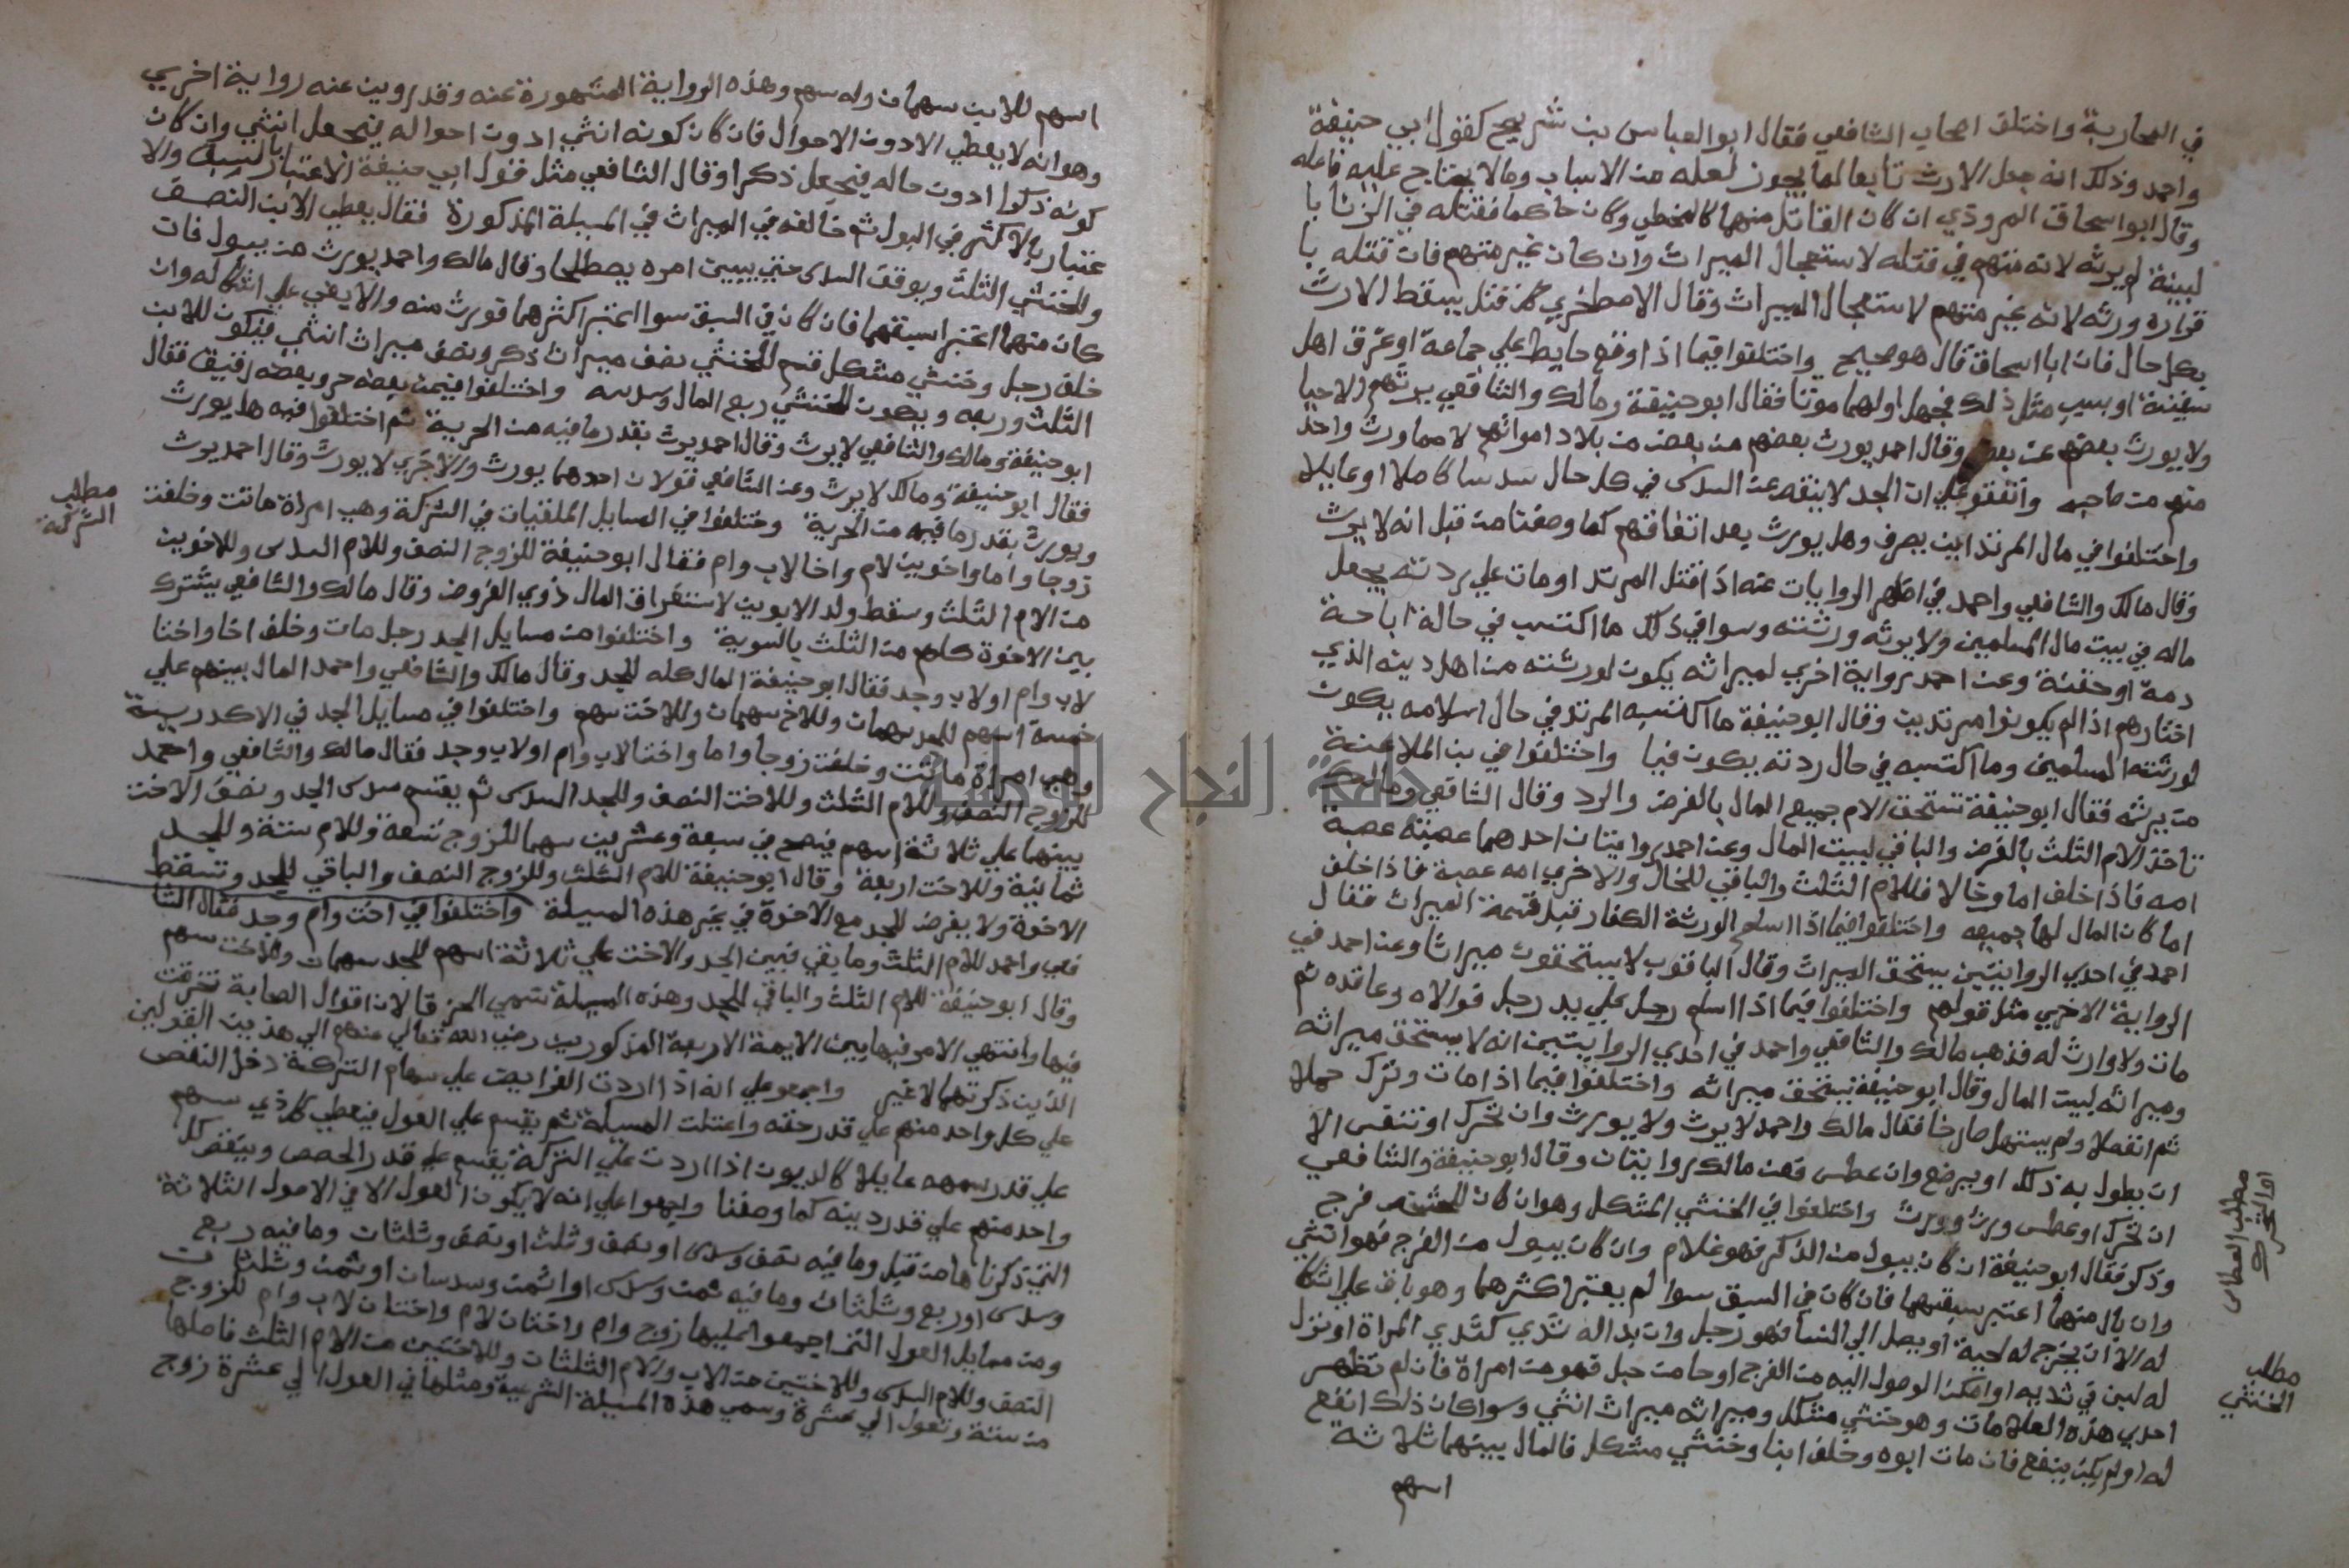 في المحاربة واختلف اصحاب الشافعي فقال ابو العباس بن شريح كقول ابي حنيفة
واحمد وذلك انه جعل الارث تابعا لما يجوز فعله من الاسباب ومالا يحتاج عليه فاعله
وقال ابو اسحاق المروذي ان كان القاتل منهما كالمخطي وكان حاكما فقتله في الزنا با
لبينة لم يرثه لانه متهم في قتله لاستعجال الميراث وان كان غير متهم فان قتله با
قراره ورثه لانه غير متهم لاستعجال الميراث وقال الاصطخري قتل يسقط الارث
بكل حال فان ابا اسحاق قال هو صحيح واختلفوا فيما اذا وقع حايط علي جماعة او غرق اهل
سفينة او بسبب مثل ذلك فجهل اولهما موتا فقال ابو حنيفة ومالك والشافعي يرثهم الاحيا
ولا يورث بعضهم عن بعض وقال احمد يورث بعضهم من بعض من بلاد اموالهم لا مما ورث واحد
منهم من صاحبه واتفقوا علي ان الجد لا ينقصه عن السدس في كل حال سدسا كاملا او عايلا
واختلفوا في مال المرتد اين يصرف وهل يورث بعد اتفاقهم كما وصفنا من قبل انه لا يرث
وقال مالك والشافعي واحمد في اظهر الروايات عنه اذا قتل المرتد او مات علي ردته يجعل
ماله في بيت مال المسلمين ولا يرثه ورثته وسوا في ذلك ما اكتسب في حالة اباحة
دمه او حقنه وعن احمد رواية اخري لميراثه يكون لورثته من اهل دينه الذي
اختارهم اذا لم يكونوا مرتدين وقال ابو حنيفة ما اكتسبه المرتد في حال اسلامه يكون
لورثته المسلمين وما اكتسبه في حال ردته يكون فيا واختلفوا في بن الملاعنة
من يرثه فقال ابو حنيفة تستحق الام جميع المال بالفرض والرد وقال الشافعي ومالك
تاخذ الام الثلث بالفرض والباقي لبيت المال وعن احمد روايتان احدهما عصبته عصبة
امه فاذا خلف اما وخالا فللام الثلث والباقي للخال والاخري امه عصبة فاذا خلف
اما كان المال لها جميعه واختلفوا فيما اذا اسلم الورثة الكفار قبل قسمة الميراث فقال
احمد في احدي الروايتين يستحق الميراث وقال الباقون لا يستحقون ميراثا وعن احمد في
الرواية الاخري مثل قولهم واختلفوا فيما اذا اسلم رجل علي يد رجل فوالاه وعاقده ثم
مات ولا وارث له فذهب مالك والشافعي واحمد في احدي الروايتين انه لا يستحق ميراثه
وميراثه لبيت المال وقال ابو حنيفة يستحق ميراثه واختلفوا فيما اذا مات وترك حملا
ثم انفصلا ولم يستهل صارخا فقال مالك واحمد لا يرث ولا يورث وان تحرك او تنفس الا
ان يطول به ذلك او يرضع وان عطس فعن مالك روايتان وقال ابو حنيفة والشافعي
ان تحرك او عطس ورث وورث واختلفوا في الخنثي المشكل وهو ان كان للشخص فرج
وذكر فقال ابو حنيفة ان كان يبول من الذكر فهو غلام وان كان يبول من الفرج فهو انثي
وان بال منهما اعتبر سبقهما فان كان في السبق سوا لم يعتبر اكثرهما وهو باق علي اشكا
له الا ان يخرج له لحية او يصل الي النسا فهو رجل وان بدا له ثدي كثدي المراة او نزل
له لبن في ثديه او امكن الوصول اليه من الفرج او حا من حبل فهو من امراة فان لم تظهر
احدي هذه العلامات وهو خنثي مشكل وميراثه ميراث انثي وسوا كان ذلك انفع
له او لم يكن ينفع فان مات ابوه وخلف ابنا وخنثي مشكل فالمال بينهما ثلاثة
اسهم
مطلب العطاس
او التحرك
مطلب
الخنثي
اسهم للابن سهمان وله سهم وهذه الرواية المشهورة عنه وقد روين عنه رواية اخري
وهو انه لا يعطي الا دون الاحوال فان كان كونه انثي ادون احواله فيجعل انثي وان كان
كونه ذكرا ادون حاله فيجعل ذكرا وقال الشافعي مثل قول ابي حنيفة الاعتبار بالسبق والا
عتبار بالاكثر في البول ثم خالفه في الميراث في المسيلة المذكورة فقال يعطي الابن النصف
وللخنثي الثلث ويوقف السدس حتي يبين امره يصطلحا وقال مالك واحمد يورث من يبول فان
كان منهما اعتبر اسبقهما فان كان في السبق سوا اعتبر اكثرهما فورث منه والا بقي علي اشكاله وان
خلف رجل وخنثي مشكل قسم للخنثي نصف ميراث ذكر ونصف ميراث انثي فيكون للابن
الثلث وربعه ويكون للخنثي ربع المال وسدسه واختلفوا فيمن بعضه حر وبعضه رقيق فقال
ابو حنيفة ومالك والشافعي لا يرث وقال احمد يرث بقدر ما فيه من الحرية ثم اختلفوا فيه هل يورث
فقال ابو حنيفة ومالك لا يرث وعن الشافعي قولان احدهما يورث والاخري لا يورث وقال احمد يرث
ويورث بقدر ما فيه من الحرية وختلفوا في المسايل الملقبات في الشركة وهي امراة ماتت وخلفت
زوجا واما واخوين لام واخا لاب وام فقال ابو حنيفة للزوج النصف وللام السدس وللاخوين
من الام الثلث وسقط ولد الابوين لاستغراق المال ذوي الفروض وقال مالك والشافعي يشترك
بين الاخوة كلهم من الثلث بالسوية واختلفوا من مسايل الجد رجل مات وخلف اخا واختا
لاب وام او لاب وجد فقال ابو حنيفة المال كله للجد وقال مالك والشافعي واحمد المال بينهم علي
خمسة اسهم للجد سهمان وللاخ سهمان وللاخت سهم واختلفوا في مسايل الجد في الاكدرية
وهي امراة ماتت وخلفت زوجا واما واختا لاب وام او لاب وجد فقال مالك والشافعي واحمد
للزوج النصف وللام الثلث وللاخت النصف وللجد السدس ثم يقسم سدس الجد ونصف الاخت
بينهما علي ثلاثة اسهم فيصح في سبعة وعشرين سهما للزوج تسعة وللام ستة وللجد
ثمانية وللاخت اربعة وقال ابو حنيفة للام الثلث وللزوج النصف والباقي للجد وتسقط
الاخوة ولا يفرض للجد مع الاخوة في غير هذه المسيلة واختلفوا في اخت وام وجد فقال الشا
فعي واحمد للام الثلث وما بقي فبين الجد والاخت علي ثلاثة اسهم للجد سهمان وللاخت سهم
وقال ابو حنيفة للام الثلث والباقي للجد وهذه المسيلة تسمي الخرقا لان اقوال الصحابة تخرقت
فيها وانتهي الامر فيها بين الايمة الاربعة المذكورين رضي الله تعالي عنهم الي هذين القولين
الذين ذكرتهما لا غير واجمعو علي انه اذا اردت الفرايض علي سهام التركة دخل النقص
علي كل واحد منهم علي قدر حقه واعتلت المسيلة ثم يقسم علي العول فيعطي كل ذي سهم
علي قدر سهمه عايلا كالديون اذا اردت علي التركة يقسم علي قدر الحصص وينقص كل
واحد منهم علي قدر دينه كما وصفنا واجمعوا علي انه لا يكون العول الا في الاصول الثلاثة
التي ذكرناها من قبل وما فيه نصف وسدس او نصف وثلث او نصف وثلثان وما فيه ربع
وسدس او ربع وثلثان وما فيه ثمن وسدس او ثمن وسدسان او ثمن وثلثان
ومن مسايل العول التي اجمعوا عليها زوج وام واختان لام واختان لاب وام للزوج
النصف وللام السدس وللاختين من الاب والام الثلثان وللاختين من الام الثلث فاصلها
من ستة وتعول الي عشرة وسمي هذه المسيلة الشرعية ومثلها في العول الي عشرة زوج
مطلب
الشركة
جامعة النجاح الوطنية